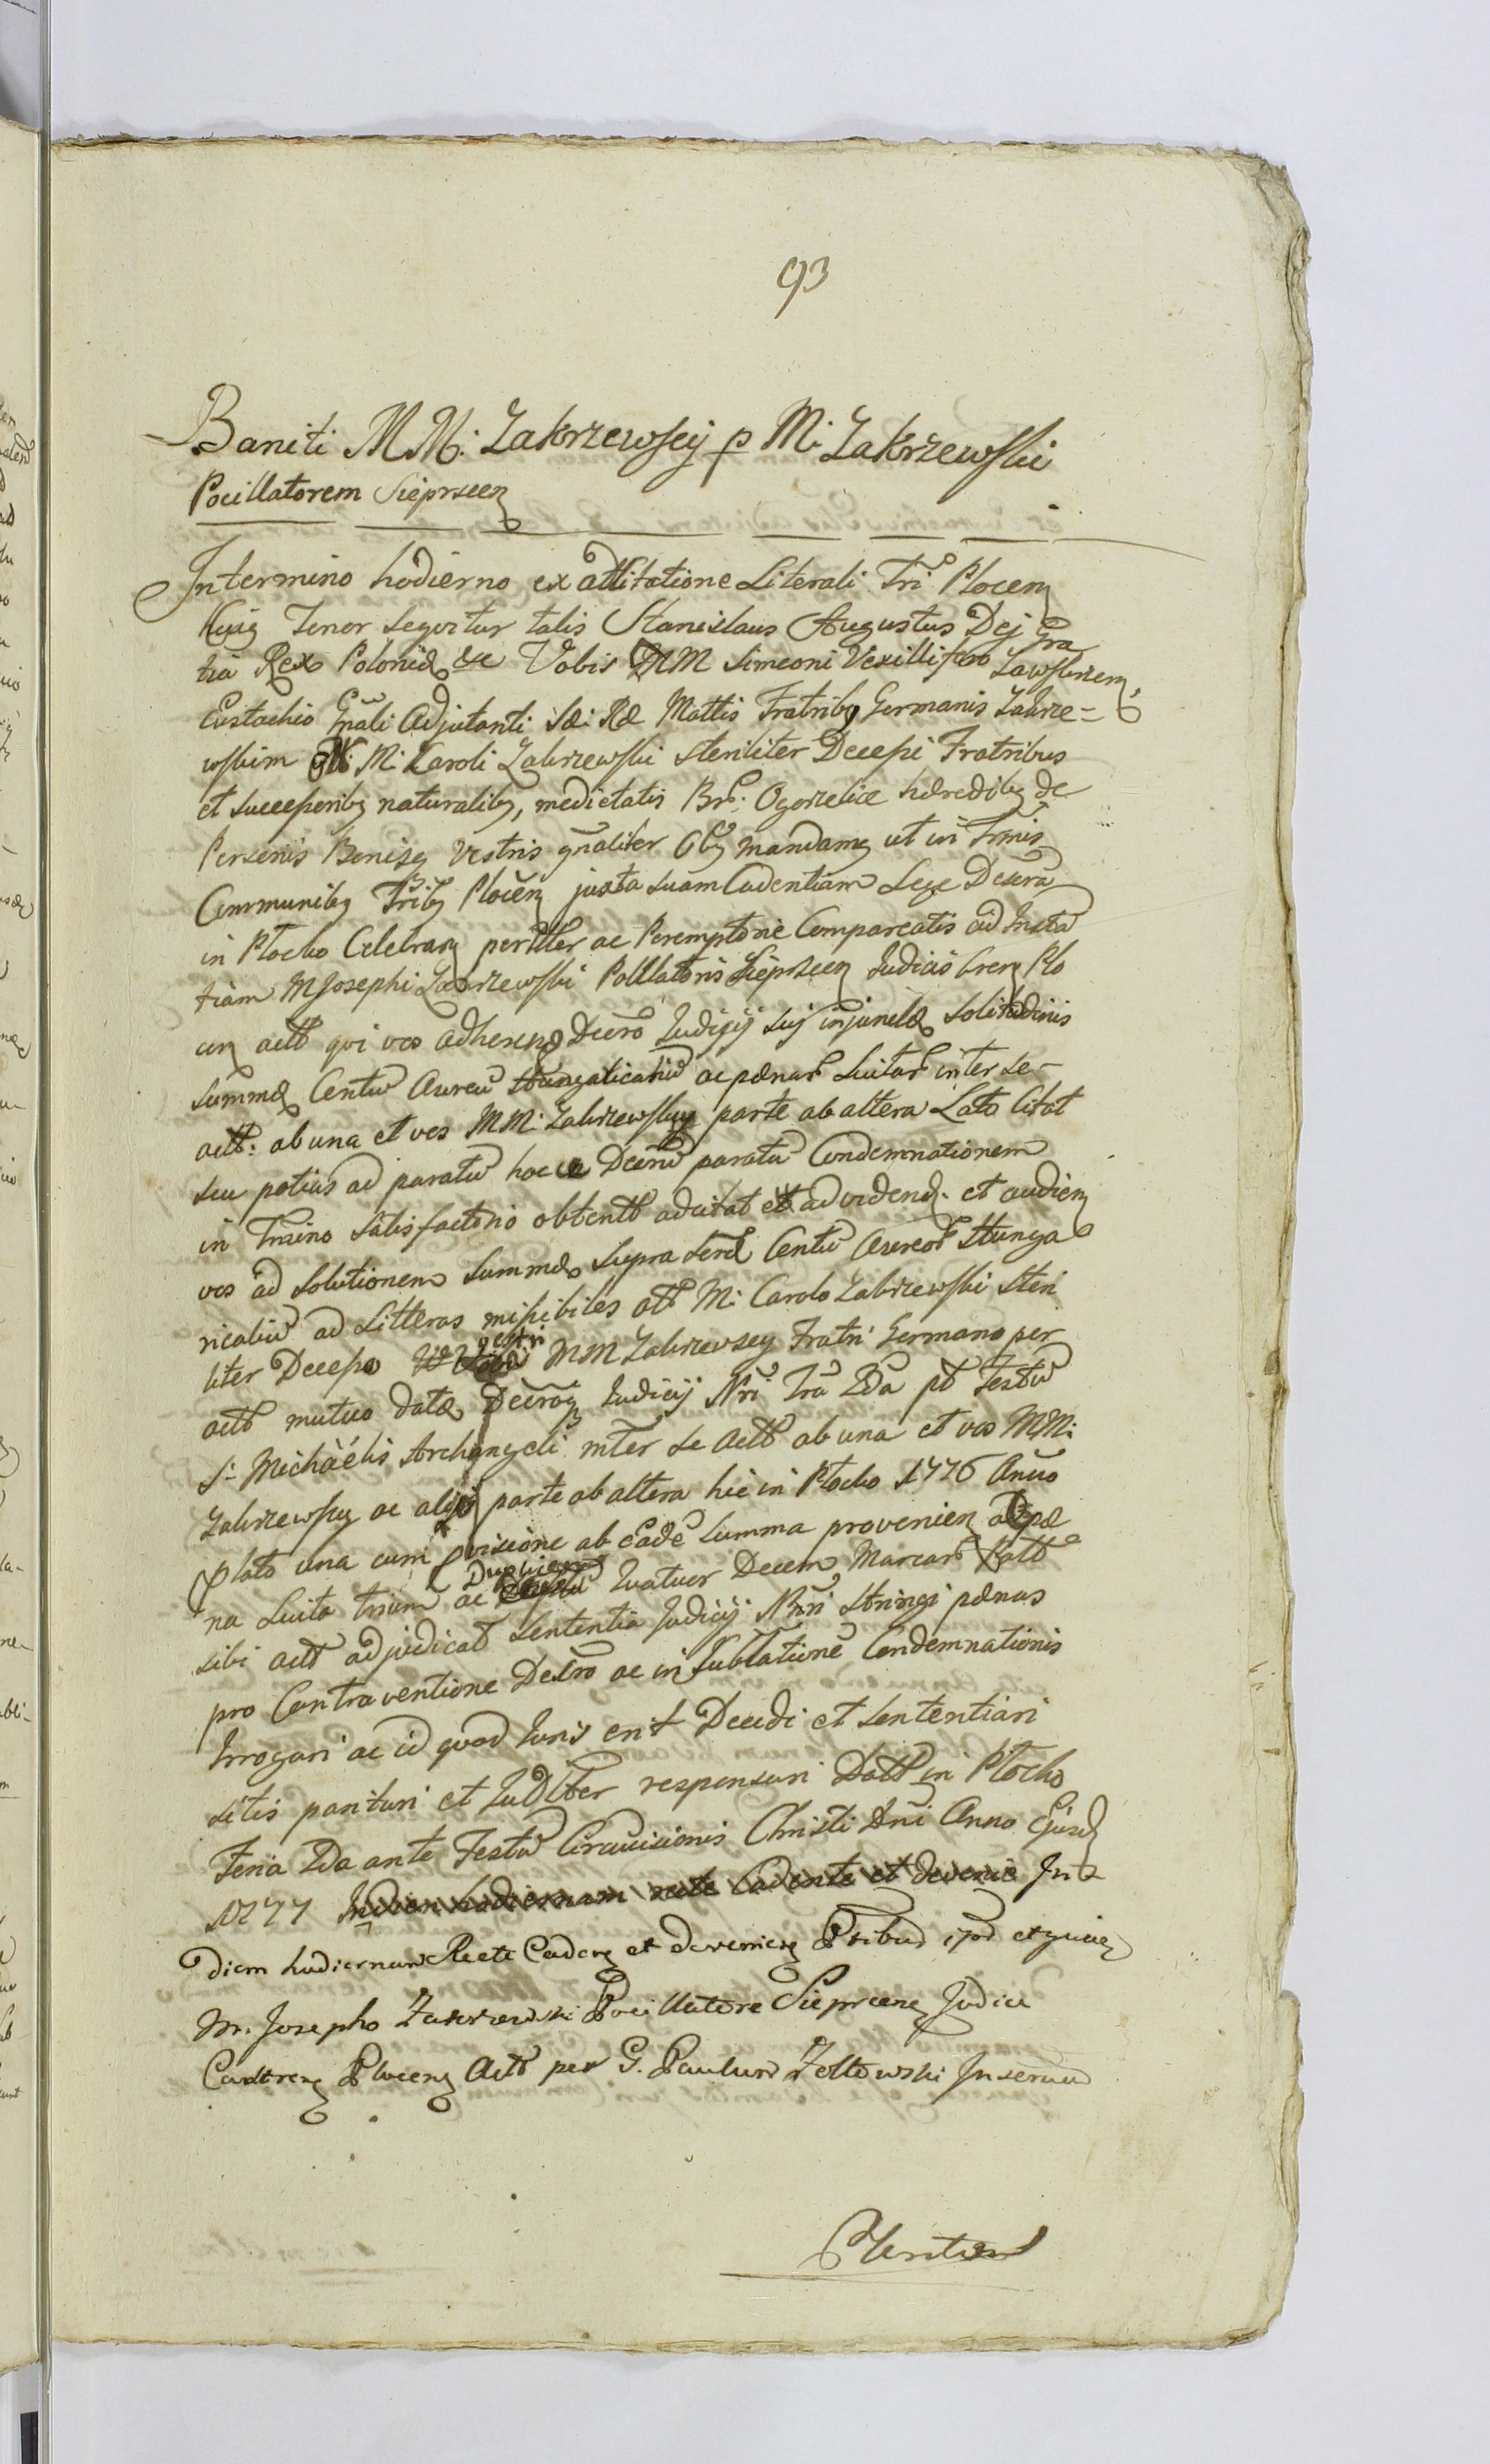 93
Baniti MM: Zakrzewscy p M: Zakrzewski
Pocillatorem Sieprscen
In termino hodierno ex Attitatione Literali Tri Plocen
Cujus Tenor seqvitur talis Stanislaus Augustus Dej Gra
tia Rex Poloniæ &c Vobis MM Simeoni Vexillifero Zawskrzen,
Eustachio Gnali Adjutanti Sæ: Ræ Mattis Fratribq Germanis Zakrze=
wskim M: Caroli Zakrzewski steriliter Decessi Fratribus
et Successoribq naturalibq, medietatis Br: Ogorzelice hæredibq de
Personis Bonisq Vestris gnaliter Obq mandamq ut in Trnis
Communibq Tribq Plocen juxta suam Cadentiam Lege Descra
in Plocko Celebran perslter ac Peremptorie Compareatis ad Insta
tiam M Josephi Zakrzewski Pollatoris Sieprscen Judicis Cren Plo
cen actt qvi vos adheren Decro Judicij sui injunctæ Solitudinis
summæ Centu Aureor Hungaricaliu ac pænar Luitar inter se
actt: ab una et vos MM: Zakrzewskq parte ab altera Lato Citat
seu potius ad paratu hoc Decru paratu Condemnationem
in Trmino Satisfactorio obtentt adcitat et ad vidend. et audien
vos ad Solutionem Summæ Supra Scrd Centu Aureor Hunga
ricaliu ad Litteras missibiles att M: Carolo Zakrzewski steri
liter Decesso vestri MM Zakrzewscy Fratri Germano per
actt mutuo datæ Decroq Judicij Nri Fra 2da pt Festu
S: Michäélis Archangeli inter se Actt ab una et vos MM:
Zakrzewskq ac alijs parte ab altera hic in Plocko 1776 Anno
plato una cum provisione ab eade summa provenien atq pæ
na Luita trium ac Duplicen Qvatuor Decem Marcar Patt
sibi actt adjudicat Sententia Judicij Nri stringi pænas
pro Contraventione Decro ac in Sublatione Condemnationis
Irrogari ac id qvod Juris erit Decidi et Sententiari
sitis parituri et Judlter responsuri Datt in Plocko
Feria 2da ante Festu Circucisionis Christi Dni Anno Ejusd
1777 In diem hodiernam recte Cadente et devenie In
diem hodiernam Recte Caden et devenien Ptibus ipso et
M. Josepho Zakrzewski Pocillatore Sieprcen Judice
Castren Plocen Actt per G. Paulum Zoltowski